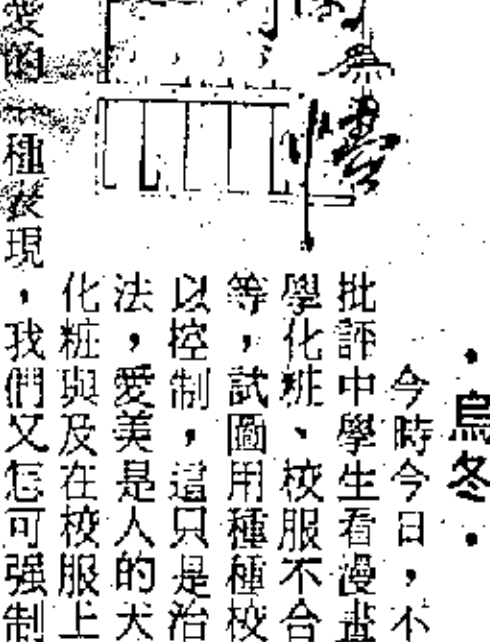 ·烏冬·
今時今日，不
批評中學生看漫畫
學化粧、校服不合
等，試圖用種種校
以控制，這只是治
法，愛美是人的天
化粧與及在校服上
愛的一種表現，我們又怎可强制